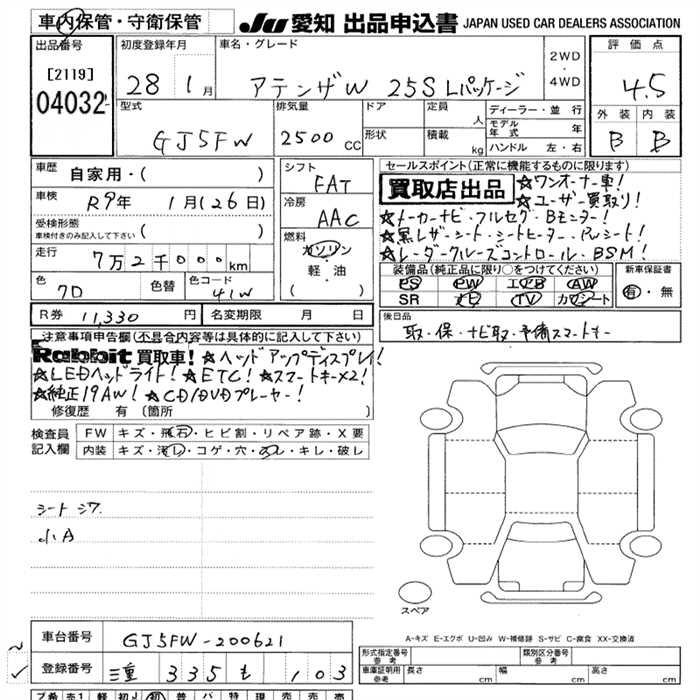 車内保管・守衛保管
JU 愛知 出品申込書 JAPAN USED CAR DEALERS ASSOCIATION
出品番号
[2119]
04032
初度登録年月
28 1月
車名・グレード
アテンザW 25S Lパッケージ
2WD
4WD
評価点
4.5
型式
GJ5FW
排気量
2500 cc
ドア
形状
定員 人
積載 kg
ディーラー・並行
モデル年式 年
ハンドル 左・右
外装 内装
B B
車歴 自家用・( )
車検 R9年 1月(26日)
受検形態
車検付きのみ記入して下さい ( )
走行 7万2千000km
色 グロ 色替 色コード 41W
シフト FAT
冷房 AAC
燃料
ガソリン
軽油
( )
セールスポイント(正常に機能するものに限ります)
買取店出品 ★ワンオーナー車!
★ユーザー買取り!
★メーカーナビ・フルセグ・Bモニター!
★黒レザーシート・シートヒーター・Pwシート!
★レーダークルーズコントロール・BSM!
装備品(純正品に限り○をつけてください) 新車保証書
PS PW エアB AW
SR ナビ TV カワシート
有・無
R券 11,330円 名変期限 月 日
後日品
取・保・ナビ取・予備スマートキー
注意事項申告欄(不具合内容等は具体的に記入して下さい)
Rabbit買取車! ★ヘッドアップディスプレイ!
★LEDヘッドライト! ★ETC! ★スマートキー×2!
★純正19AW! ★CD/DVDプレーヤー!
修復歴 有 (箇所 )
検査員記入欄
FW キズ・飛石・ヒビ割・リペア跡・X要
内装 キズ・汚レ・コゲ・穴・スレ・キレ・破レ
シートシワ
小A
スペア
A-キズ E-エクボ U-凹み W-補修跡 S-サビ C-腐食 XX-交換済
車台番号 GJ5FW-200621
登録番号 三重 335 も 103
形式指定番号 参考 類別区分番号 参考
車庫証明用 参考 長さ cm 幅 cm 高さ cm